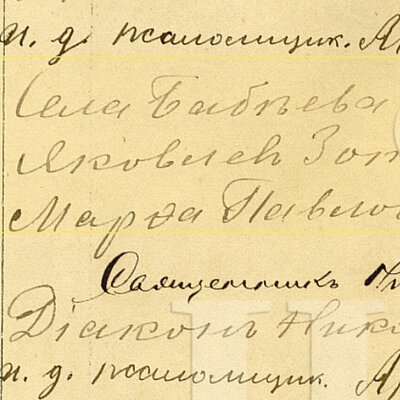 и. д. псаломщик. А
Села Бабѣева
Яковлев Зот
Марѳа Павло
Священникъ Ни
Діаконъ Нико
и. д. псаломщик. А